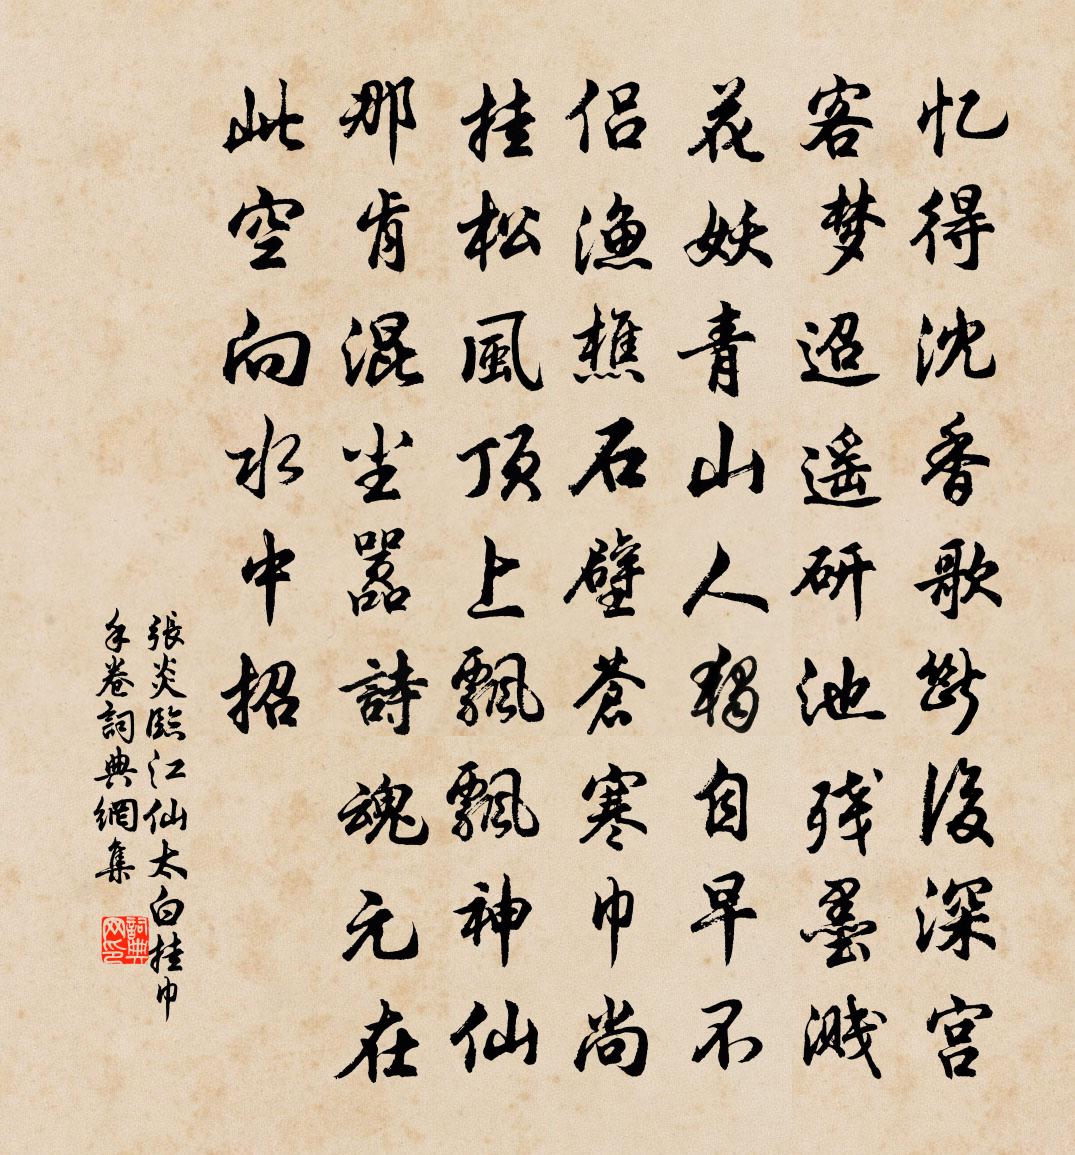 忆得沈香歌断后深宫
客梦迢遥研池残墨溅
花妖青山人独自早不
侣渔樵石壁苍寒巾尚
挂松風顶上飘飘神仙
那肯混尘嚣詩魂元在
此空向水中招
張炎臨江仙太白挂巾
手卷詞典網集